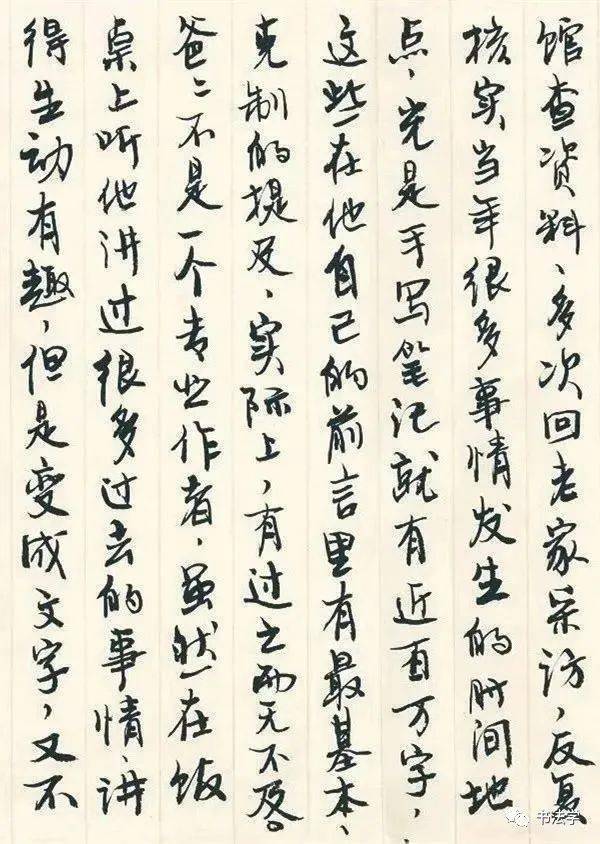 馆查资料、多次回老家采访,反复
核实当年很多事情发生的时间地
点,光是手写笔记就有近百万字,
这些在他自己的前言里有最基本、
克制的提及,实际上,有过之而无不及。
爸爸不是一个专业作者,虽然在饭
桌上听他讲过很多过去的事情,讲
得生动有趣,但是变成文字,又不
书法学